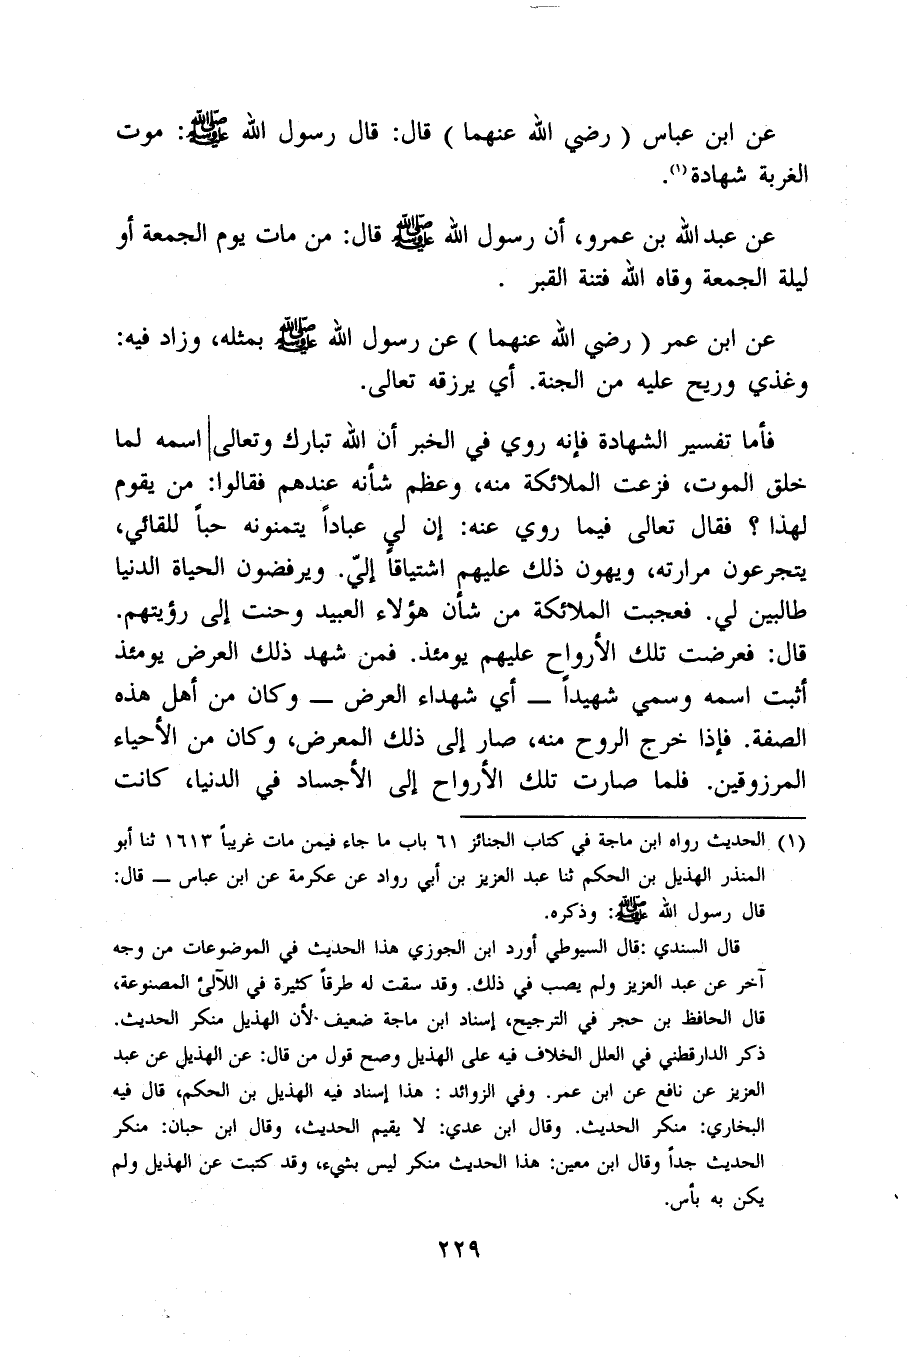 عن ابن عباس ( رضي الله عنهما ) قال: قال رسول الله ﷺ: موت
الغربة شهادة(١).
عن عبدالله بن عمرو، أن رسول الله ﷺ قال: من مات يوم الجمعة أو
ليلة الجمعة وقاه الله فتنة القبر .
عن ابن عمر ( رضي الله عنهما ) عن رسول الله ﷺ بمثله، وزاد فيه:
وغذي وريح عليه من الجنة. أي يرزقه تعالى.
فأما تفسير الشهادة فإنه روي في الخبر أن الله تبارك وتعالى اسمه لما
خلق الموت، فزعت الملائكة منه، وعظم شأنه عندهم فقالوا: من يقوم
لهذا ؟ فقال تعالى فيما روي عنه: إن لي عباداً يتمنونه حباً للقائي،
يتجرعون مرارته، ويهون ذلك عليهم اشتياقاً إليّ. ويرفضون الحياة الدنيا
طالبين لي. فعجبت الملائكة من شأن هؤلاء العبيد وحنت إلى رؤيتهم.
قال: فعرضت تلك الأرواح عليهم يومئذ. فمن شهد ذلك العرض يومئذ
أثبت اسمه وسمي شهيداً ــ أي شهداء العرض ــ وكان من أهل هذه
الصفة. فإذا خرج الروح منه، صار إلى ذلك المعرض، وكان من الأحياء
المرزوقين. فلما صارت تلك الأرواح إلى الأجساد في الدنيا، كانت
(١) الحديث رواه ابن ماجة في كتاب الجنائز ٦١ باب ما جاء فيمن مات غريباً ١٦١٣ ثنا أبو
المنذر الهذيل بن الحكم ثنا عبد العزيز بن أبي رواد عن عكرمة عن ابن عباس ــ قال:
قال رسول الله ﷺ: وذكره.
قال السندي :قال السيوطي أورد ابن الجوزي هذا الحديث في الموضوعات من وجه
آخر عن عبد العزيز ولم يصب في ذلك. وقد سقت له طرقاً كثيرة في اللآلئ المصنوعة،
قال الحافظ بن حجر في الترجيح، إسناد ابن ماجة ضعيف لأن الهذيل منكر الحديث.
ذكر الدارقطني في العلل الخلاف فيه على الهذيل وصح قول من قال: عن الهذيل عن عبد
العزيز عن نافع عن ابن عمر. وفي الزوائد : هذا إسناد فيه الهذيل بن الحكم، قال فيه
البخاري: منكر الحديث. وقال ابن عدي: لا يقيم الحديث، وقال ابن حبان: منكر
الحديث جداً وقال ابن معين: هذا الحديث منكر ليس بشيء، وقد كتبت عن الهذيل ولم
يكن به بأس.
٢٢٩